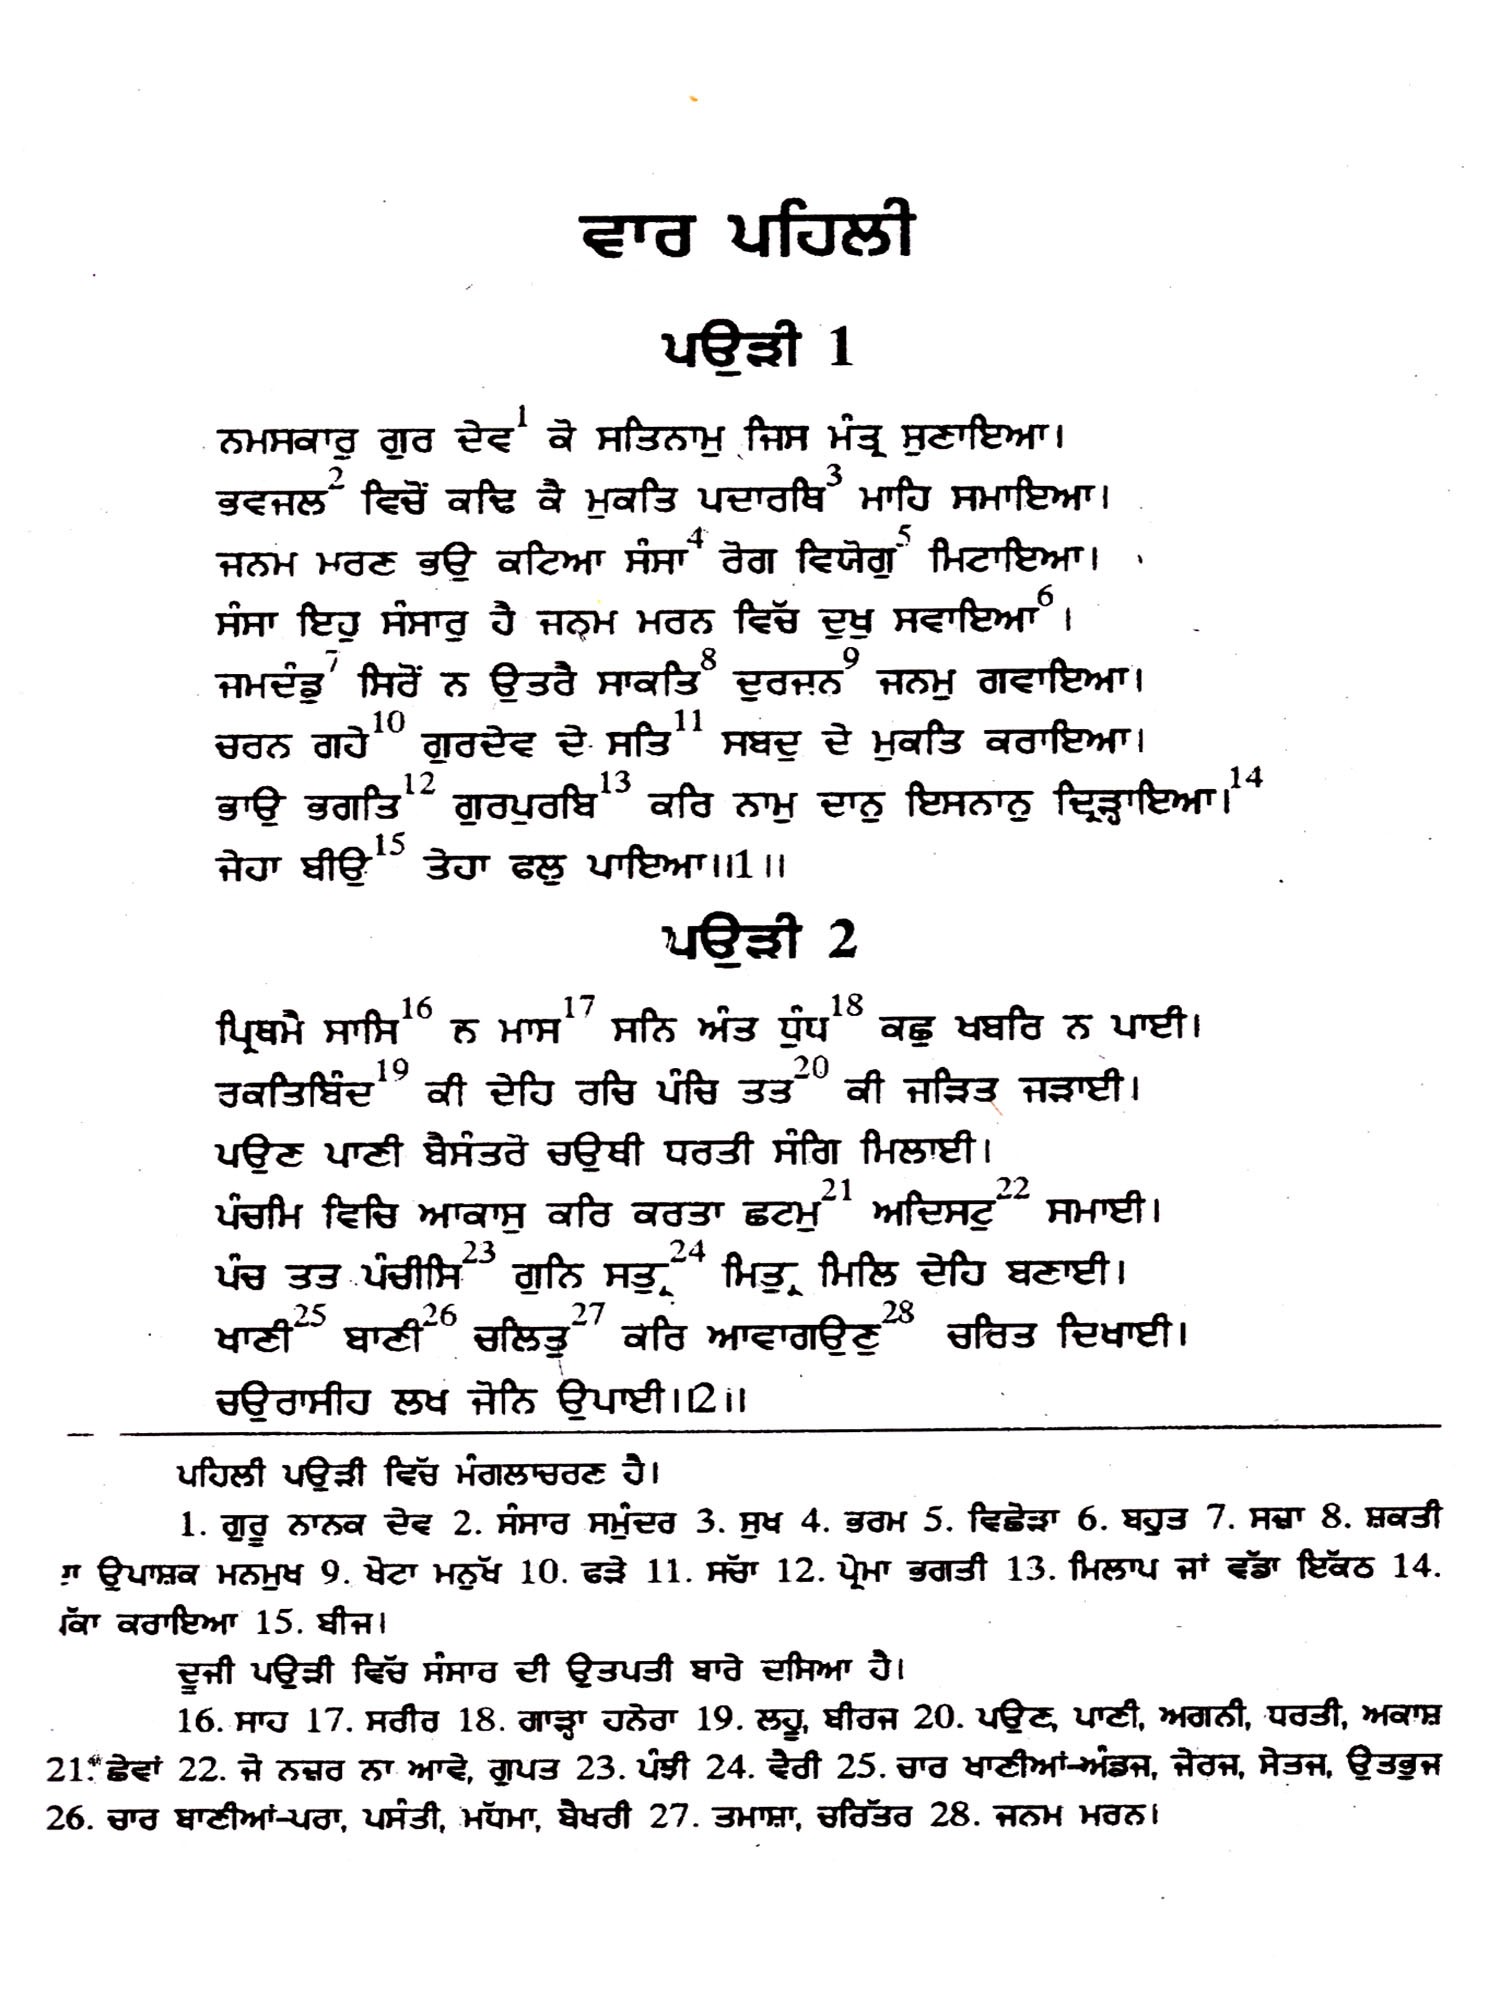 ਵਾਰ ਪਹਿਲੀ
ਪਉੜੀ 1
ਨਮਸਕਾਰੁ ਗੁਰ ਦੇਵ1 ਕੋ ਸਤਿਨਾਮੁ ਜਿਸ ਮੰਤ੍ਰ ਸੁਣਾਇਆ।
ਭਵਜਲ2 ਵਿਚੋਂ ਕਢਿ ਕੈ ਮੁਕਤਿ ਪਦਾਰਥਿ3 ਮਾਹਿ ਸਮਾਇਆ।
ਜਨਮ ਮਰਣ ਭਉ ਕਟਿਆ ਸੰਸਾ4 ਰੋਗ ਵਿਯੋਗੁ5 ਮਿਟਾਇਆ।
ਸੰਸਾ ਇਹੁ ਸੰਸਾਰੁ ਹੈ ਜਨਮ ਮਰਨ ਵਿੱਚ ਦੁਖੁ ਸਵਾਇਆ6।
ਜਮਦੰਡੁ7 ਸਿਰੋਂ ਨ ਉਤਰੈ ਸਾਕਤਿ8 ਦੁਰਜਨ9 ਜਨਮੁ ਗਵਾਇਆ।
ਚਰਨ ਗਹੇ10 ਗੁਰਦੇਵ ਦੇ ਸਤਿ11 ਸਬਦੁ ਦੇ ਮੁਕਤਿ ਕਰਾਇਆ।
ਭਾਉ ਭਗਤਿ12 ਗੁਰਪੁਰਬਿ13 ਕਰਿ ਨਾਮੁ ਦਾਨੁ ਇਸਨਾਨੁ ਦ੍ਰਿੜ੍ਹਾਇਆ।14
ਜੇਹਾ ਬੀਉ15 ਤੇਹਾ ਫਲੁ ਪਾਇਆ॥1॥
ਪਉੜੀ 2
ਪ੍ਰਿਥਮੈ ਸਾਸਿ16 ਨ ਮਾਸ17 ਸਨਿ ਅੰਤ ਧੁੰਧ18 ਕਛੁ ਖਬਰਿ ਨ ਪਾਈ।
ਰਕਤਿਬਿੰਦ19 ਕੀ ਦੇਹਿ ਰਚਿ ਪੰਚਿ ਤਤ20 ਕੀ ਜੜਿਤ ਜੜਾਈ।
ਪਉਣ ਪਾਣੀ ਬੈਸੰਤਰੋ ਚਉਥੀ ਧਰਤੀ ਸੰਗਿ ਮਿਲਾਈ।
ਪੰਚਮਿ ਵਿਚਿ ਆਕਾਸੁ ਕਰਿ ਕਰਤਾ ਛਟਮੁ21 ਅਦਿਸਟੁ22 ਸਮਾਈ।
ਪੰਚ ਤਤ ਪੰਚੀਸਿ23 ਗੁਨਿ ਸਤ੍ਰੁ24 ਮਿਤ੍ਰੁ ਮਿਲਿ ਦੇਹਿ ਬਣਾਈ।
ਖਾਣੀ25 ਬਾਣੀ26 ਚਲਿਤੁ27 ਕਰਿ ਆਵਾਗਉਣੁ28 ਚਰਿਤ ਦਿਖਾਈ।
ਚਉਰਾਸੀਹ ਲਖ ਜੋਨਿ ਉਪਾਈ॥2॥
ਪਹਿਲੀ ਪਉੜੀ ਵਿੱਚ ਮੰਗਲਾਚਰਣ ਹੈ।
1. ਗੁਰੂ ਨਾਨਕ ਦੇਵ 2. ਸੰਸਾਰ ਸਮੁੰਦਰ 3. ਸੁਖ 4. ਭਰਮ 5. ਵਿਛੋੜਾ 6. ਬਹੁਤ 7. ਸਜ਼ਾ 8. ਸ਼ਕਤੀ
ਉਪਾਸ਼ਕ ਮਨਮੁਖ 9. ਖੋਟਾ ਮਨੁੱਖ 10. ਫੜੇ 11. ਸੱਚਾ 12. ਪ੍ਰੇਮਾ ਭਗਤੀ 13. ਮਿਲਾਪ ਜਾਂ ਵੱਡਾ ਇਕੱਠ 14.
ਕਰਾਇਆ 15. ਬੀਜ।
ਦੂਜੀ ਪਉੜੀ ਵਿੱਚ ਸੰਸਾਰ ਦੀ ਉਤਪਤੀ ਬਾਰੇ ਦਸਿਆ ਹੈ।
16. ਸਾਹ 17. ਸਰੀਰ 18. ਗਾੜ੍ਹਾ ਹਨੇਰਾ 19. ਲਹੂ, ਬੀਰਜ 20. ਪਉਣ, ਪਾਣੀ, ਅਗਨੀ, ਧਰਤੀ, ਅਕਾਸ਼
21. ਛੇਵਾਂ 22. ਜੋ ਨਜ਼ਰ ਨਾ ਆਵੇ, ਗੁਪਤ 23. ਪੰਝੀ 24. ਵੈਰੀ 25. ਚਾਰ ਖਾਣੀਆਂ-ਅੰਡਜ, ਜੇਰਜ, ਸੇਤਜ, ਉਤਭੁਜ
26. ਚਾਰ ਬਾਣੀਆਂ-ਪਰਾ, ਪਸੰਤੀ, ਮਧੱਮਾ, ਬੈਖਰੀ 27. ਤਮਾਸ਼ਾ, ਚਰਿੱਤਰ 28. ਜਨਮ ਮਰਨ।